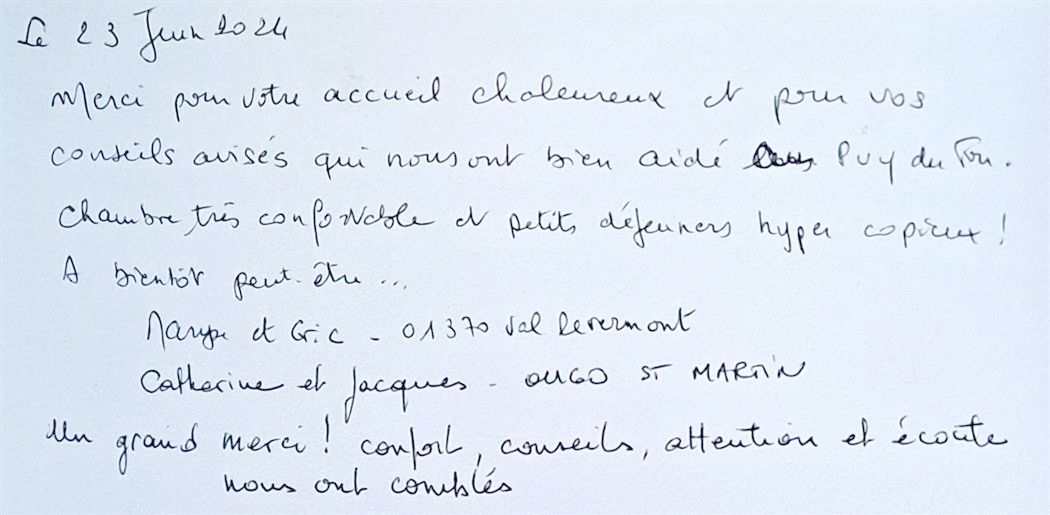 Le 23 Juin 2024
Merci pour votre accueil chaleureux et pour vos
conseils avisés qui nous ont bien aidé Puy du Fou.
Chambre très confortable et petits déjeuners hyper copieux !
A bientôt peut-être ...
et Eric - 01370 Val Revermont
Catherine et Jacques - ST MARTIN
Un grand merci ! confort, conseils, attention et écoute
nous ont comblés